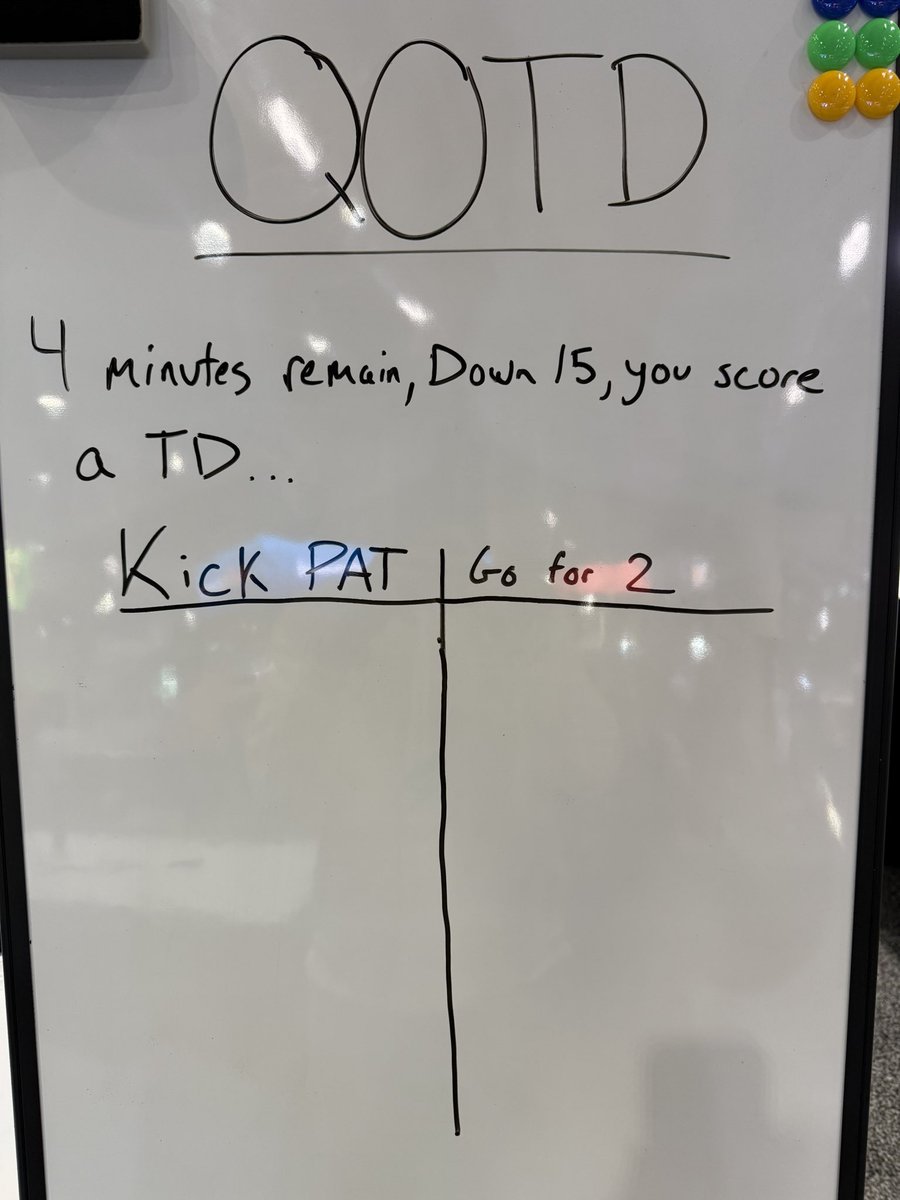 QOTD
4 minutes remain, Down 15, you score
a TD...
Kick PAT | Go for 2